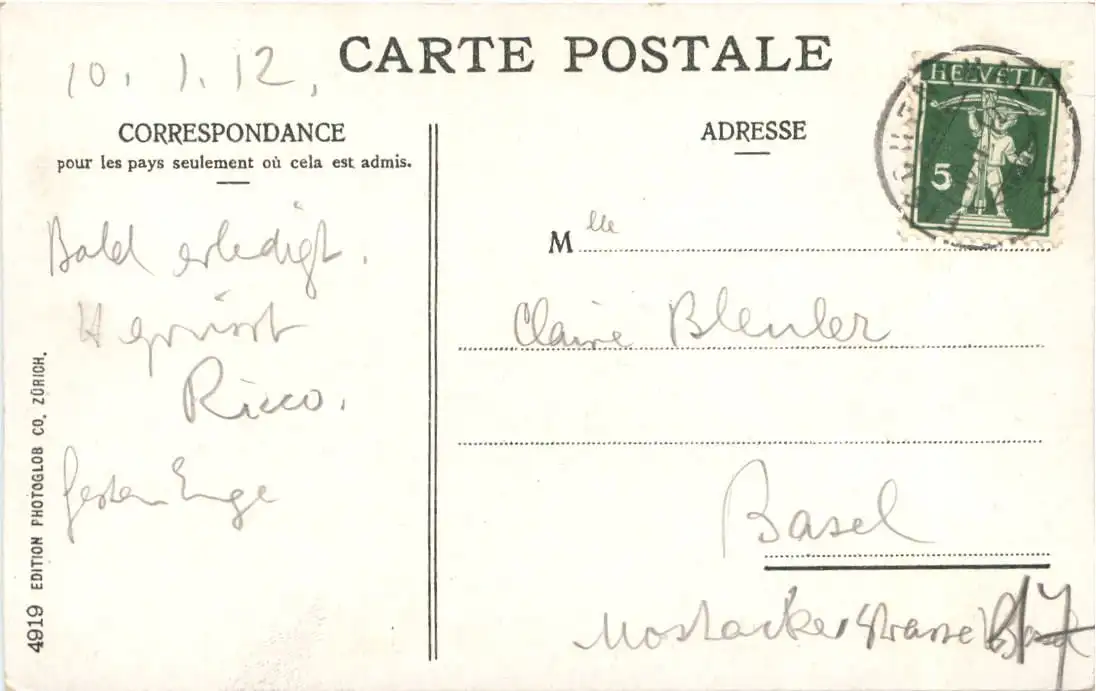 10. 1. 12,
CARTE POSTALE
CORRESPONDANCE
pour les pays seulement où cela est admis.
Bald erledigt.
grüsst
Ricco.
Gestern Enge
4919 EDITION PHOTOGLOB CO. ZÜRICH.
HELVETIA
5
ADRESSE
Mlle
Claire Bleuler
Basel
Mostackerstrasse 17